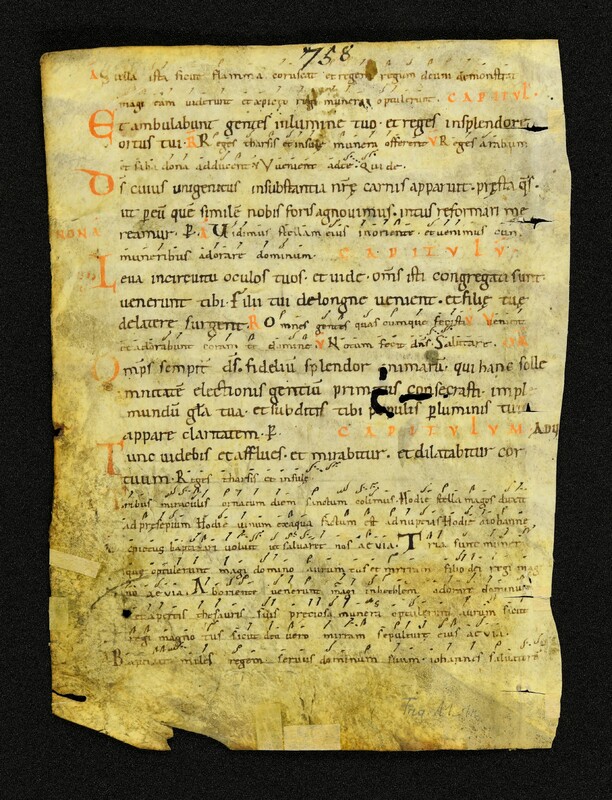 758
A Stella ista sicut flamma coruscat et regem regum deum demonstrat
magi eam viderunt et xpicto regi munera optulerunt. CAPITVL.
Et ambulabunt gentes inlumine tuo. et reges insplendore
ortus tui. R Reges tharsis et insule munera offerent V Reges arabum
et saba dona adducent V venient
Ds cuius unigenitus insubstantia nrę carnis apparuit. pręsta qs.
ut peu quē similē nobis foris agnovimus. intus reformari me
NONA reamur. P. A Vidimus stellam eius inoriente. et venimus cum
muneribus adorare dominum. CAPITVLV
Leva incircuitu oculos tuos. et vide. oms isti congregati sunt
venerunt tibi. Filii tui delonge venient. et filię tuę
delatere surgent. R Omnes gentes quas cumque fecisti V Venient
et adorabunt coram te domine. V Notum fecit dns. Salutare.
Omps sempit ds. fidelium splendor animarū. qui hanc solle
mnitatē electionis gentiū primitus consecrasti. imple
mundū gla tua. et subditis tibi populis pluminis tui
appare claritatem. P. CAPITVLVM
Tunc videbis et afflues. et mirabitur. et dilatabitur cor
tuum. R Reges tharsis et insule
tribus miraculis ornatum diem sanctum colimus. Hodie stella magos duxit
ad presepium Hodie vinum exaqua factum est ad nuptias Hodie aiohanne
xpictus baptizari voluit ut salvaret nos aevia. Tria sunt munera
que optulerunt magi domino aurum tus et mirram filio dei regi mag
no aevia. Aboriente venerunt magi inbethlem adorare dominum
et apertis thesauris suis preciosa munera optulerunt aurum sicut
regi magno tus sicut deo vero mirram sepulture eius aevia.
Baptizat miles regem servus dominum suum iohannes salvatorē